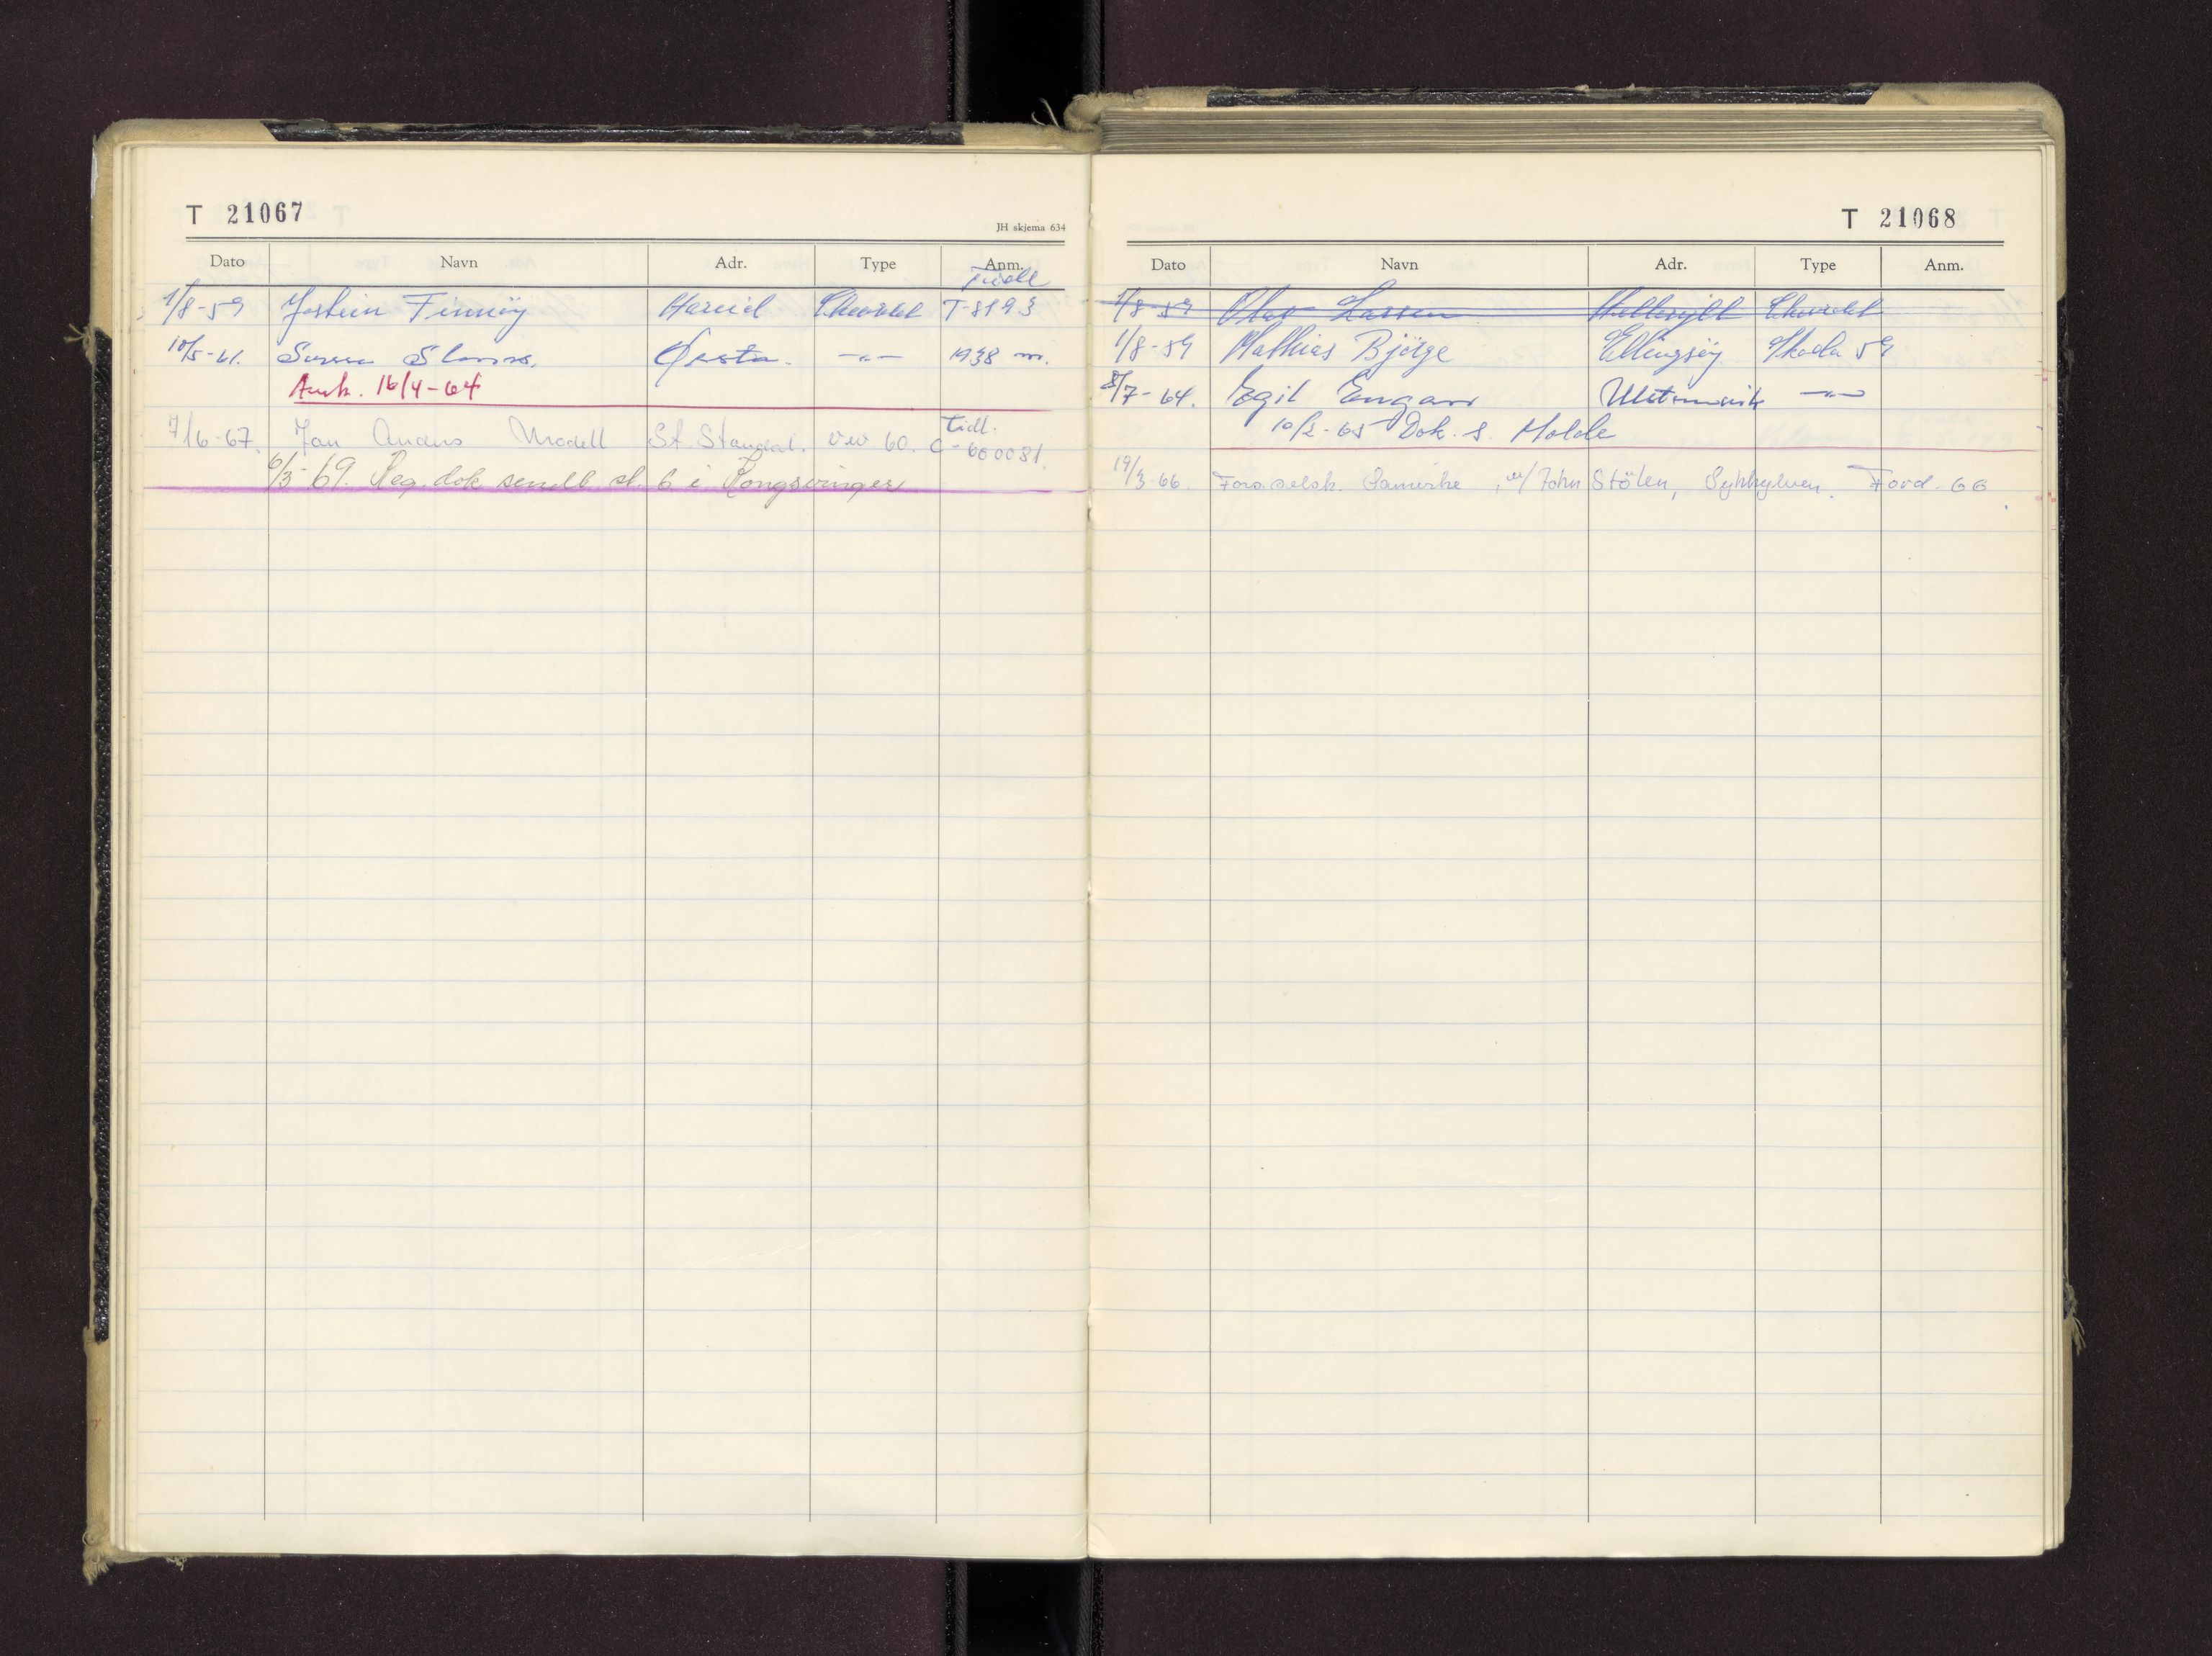 T 21067
JH skjema 634
Dato Navn Adr. Type Anm.
Tidl
1/8-59 Jostein Finnøy Hareid Chevrolet T-8193
10/5-61. Ørsta. -"- 1938 m.
Avsk. 16/4-64
Tidl.
7/6-67. Jan Modell St. VW 60. C-60081.
6/3-69. Reg. dok sendt st. 6 i Kongsvinger
T 21068
Dato Navn Adr. Type Anm.
1/8-59 Olav Larsen Hellesylt Chevrolet
1/8-59 Mathias Bjørge Ellingsøy Skoda 59
8/7-64. Egil Engan Ulsteinvik -"-
10/2-65 Dok. s. Molde
19/3-66. Forsselsk. Samvirke, v/ John Stölen, Sykkylven. Ford. 66